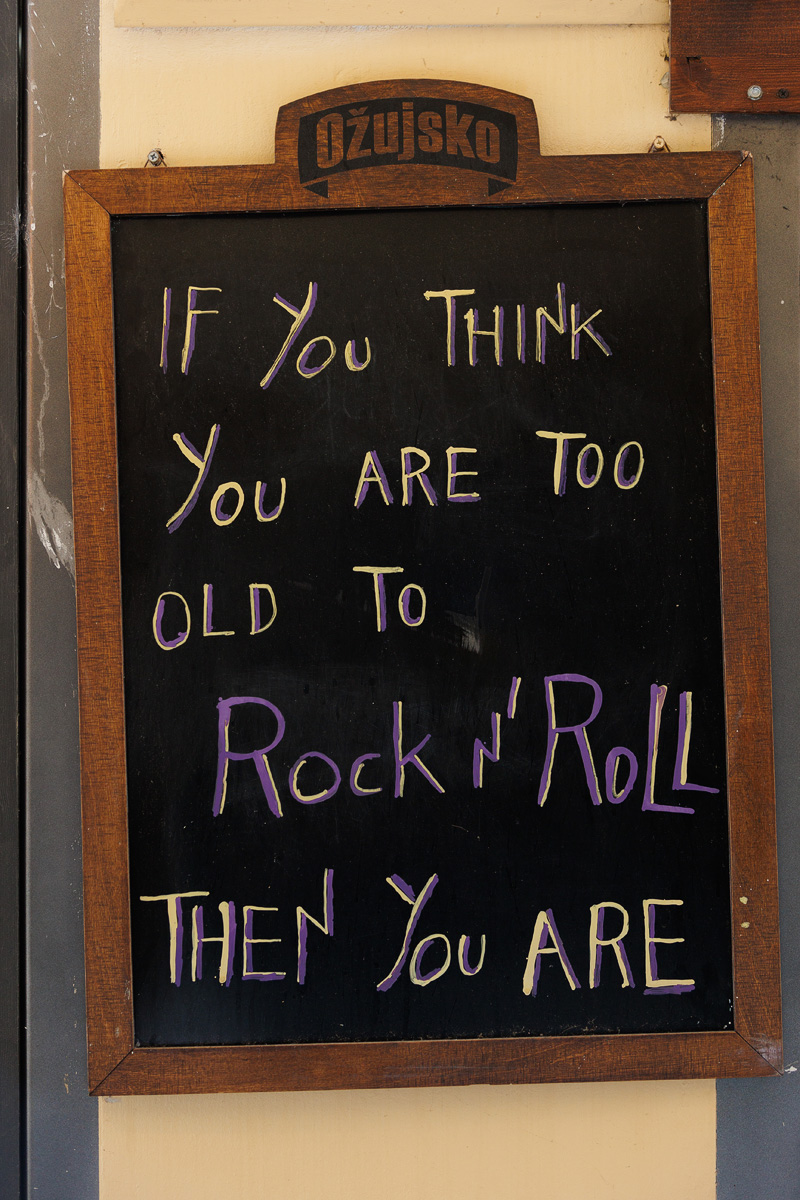 Ožujsko
IF YOU THINK
YOU ARE TOO
OLD TO
ROCK N' ROLL
THEN YOU ARE